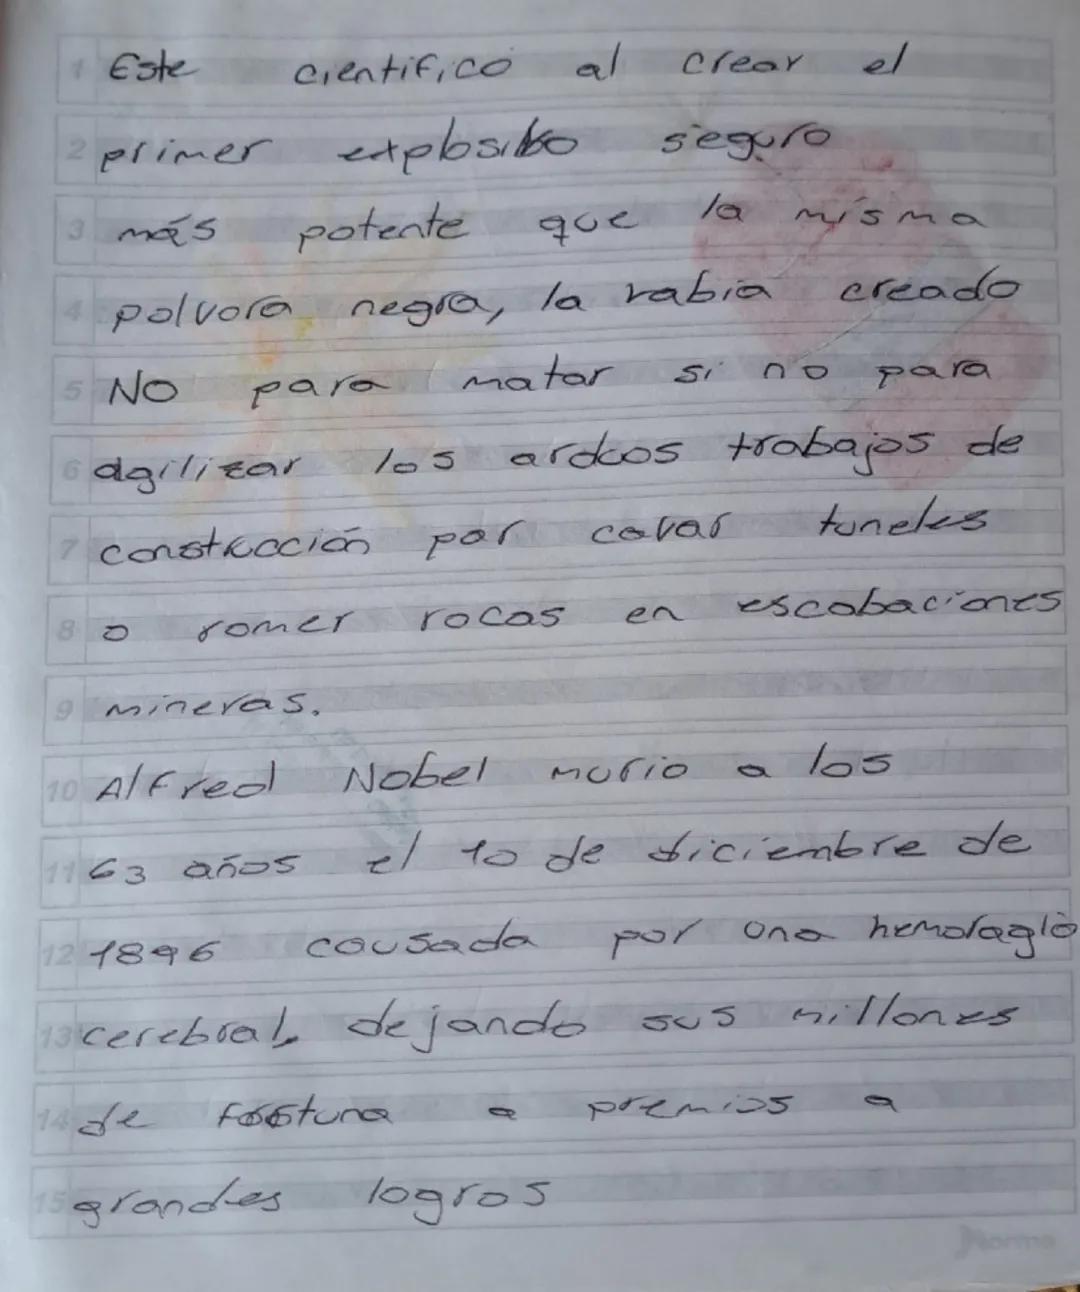 1 Este cientifico al crear el
2 primer explosibo seguro
3 más potente que la misma
4 polvora negra, la rabia creado
5 No para matar si no para
6 agilizar los arduos trabajos de
7 construcción por cavar tuneles
8 o romer rocas en escobaciones
9 mineras.
10 Alfred Nobel murio a los
11 63 años el 10 de diciembre de
12 1896 cousada por una hemoragio
13 cerebral, dejando sus millones
14 de fortuna a premios a
15 grandes logros
Norma